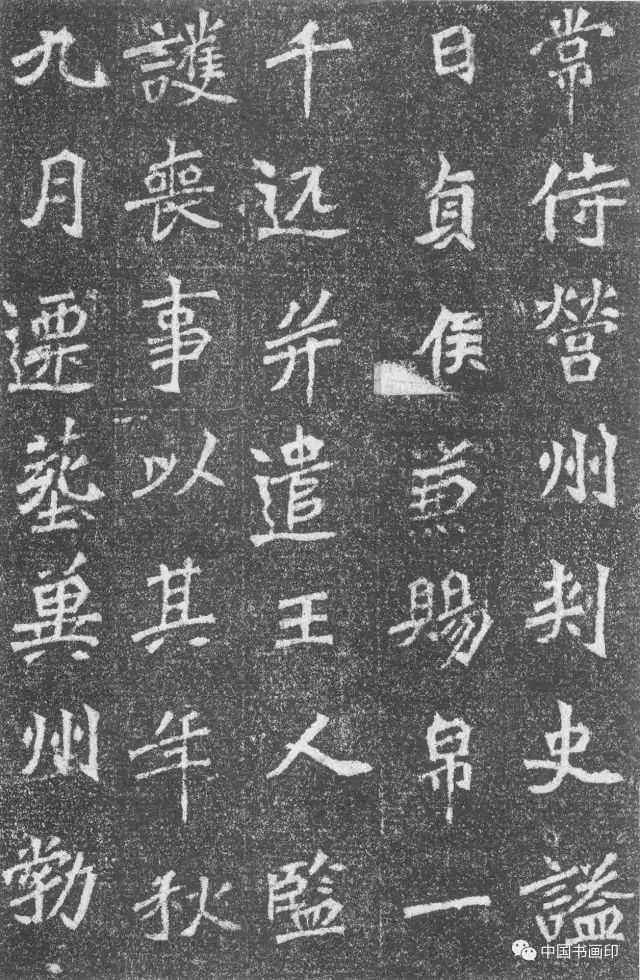 常侍營州刺史謚
曰貞侯兼賜帛一
千返并遣王人監
護喪事以其年秋
九月遷塟冀州勃
中国书画印